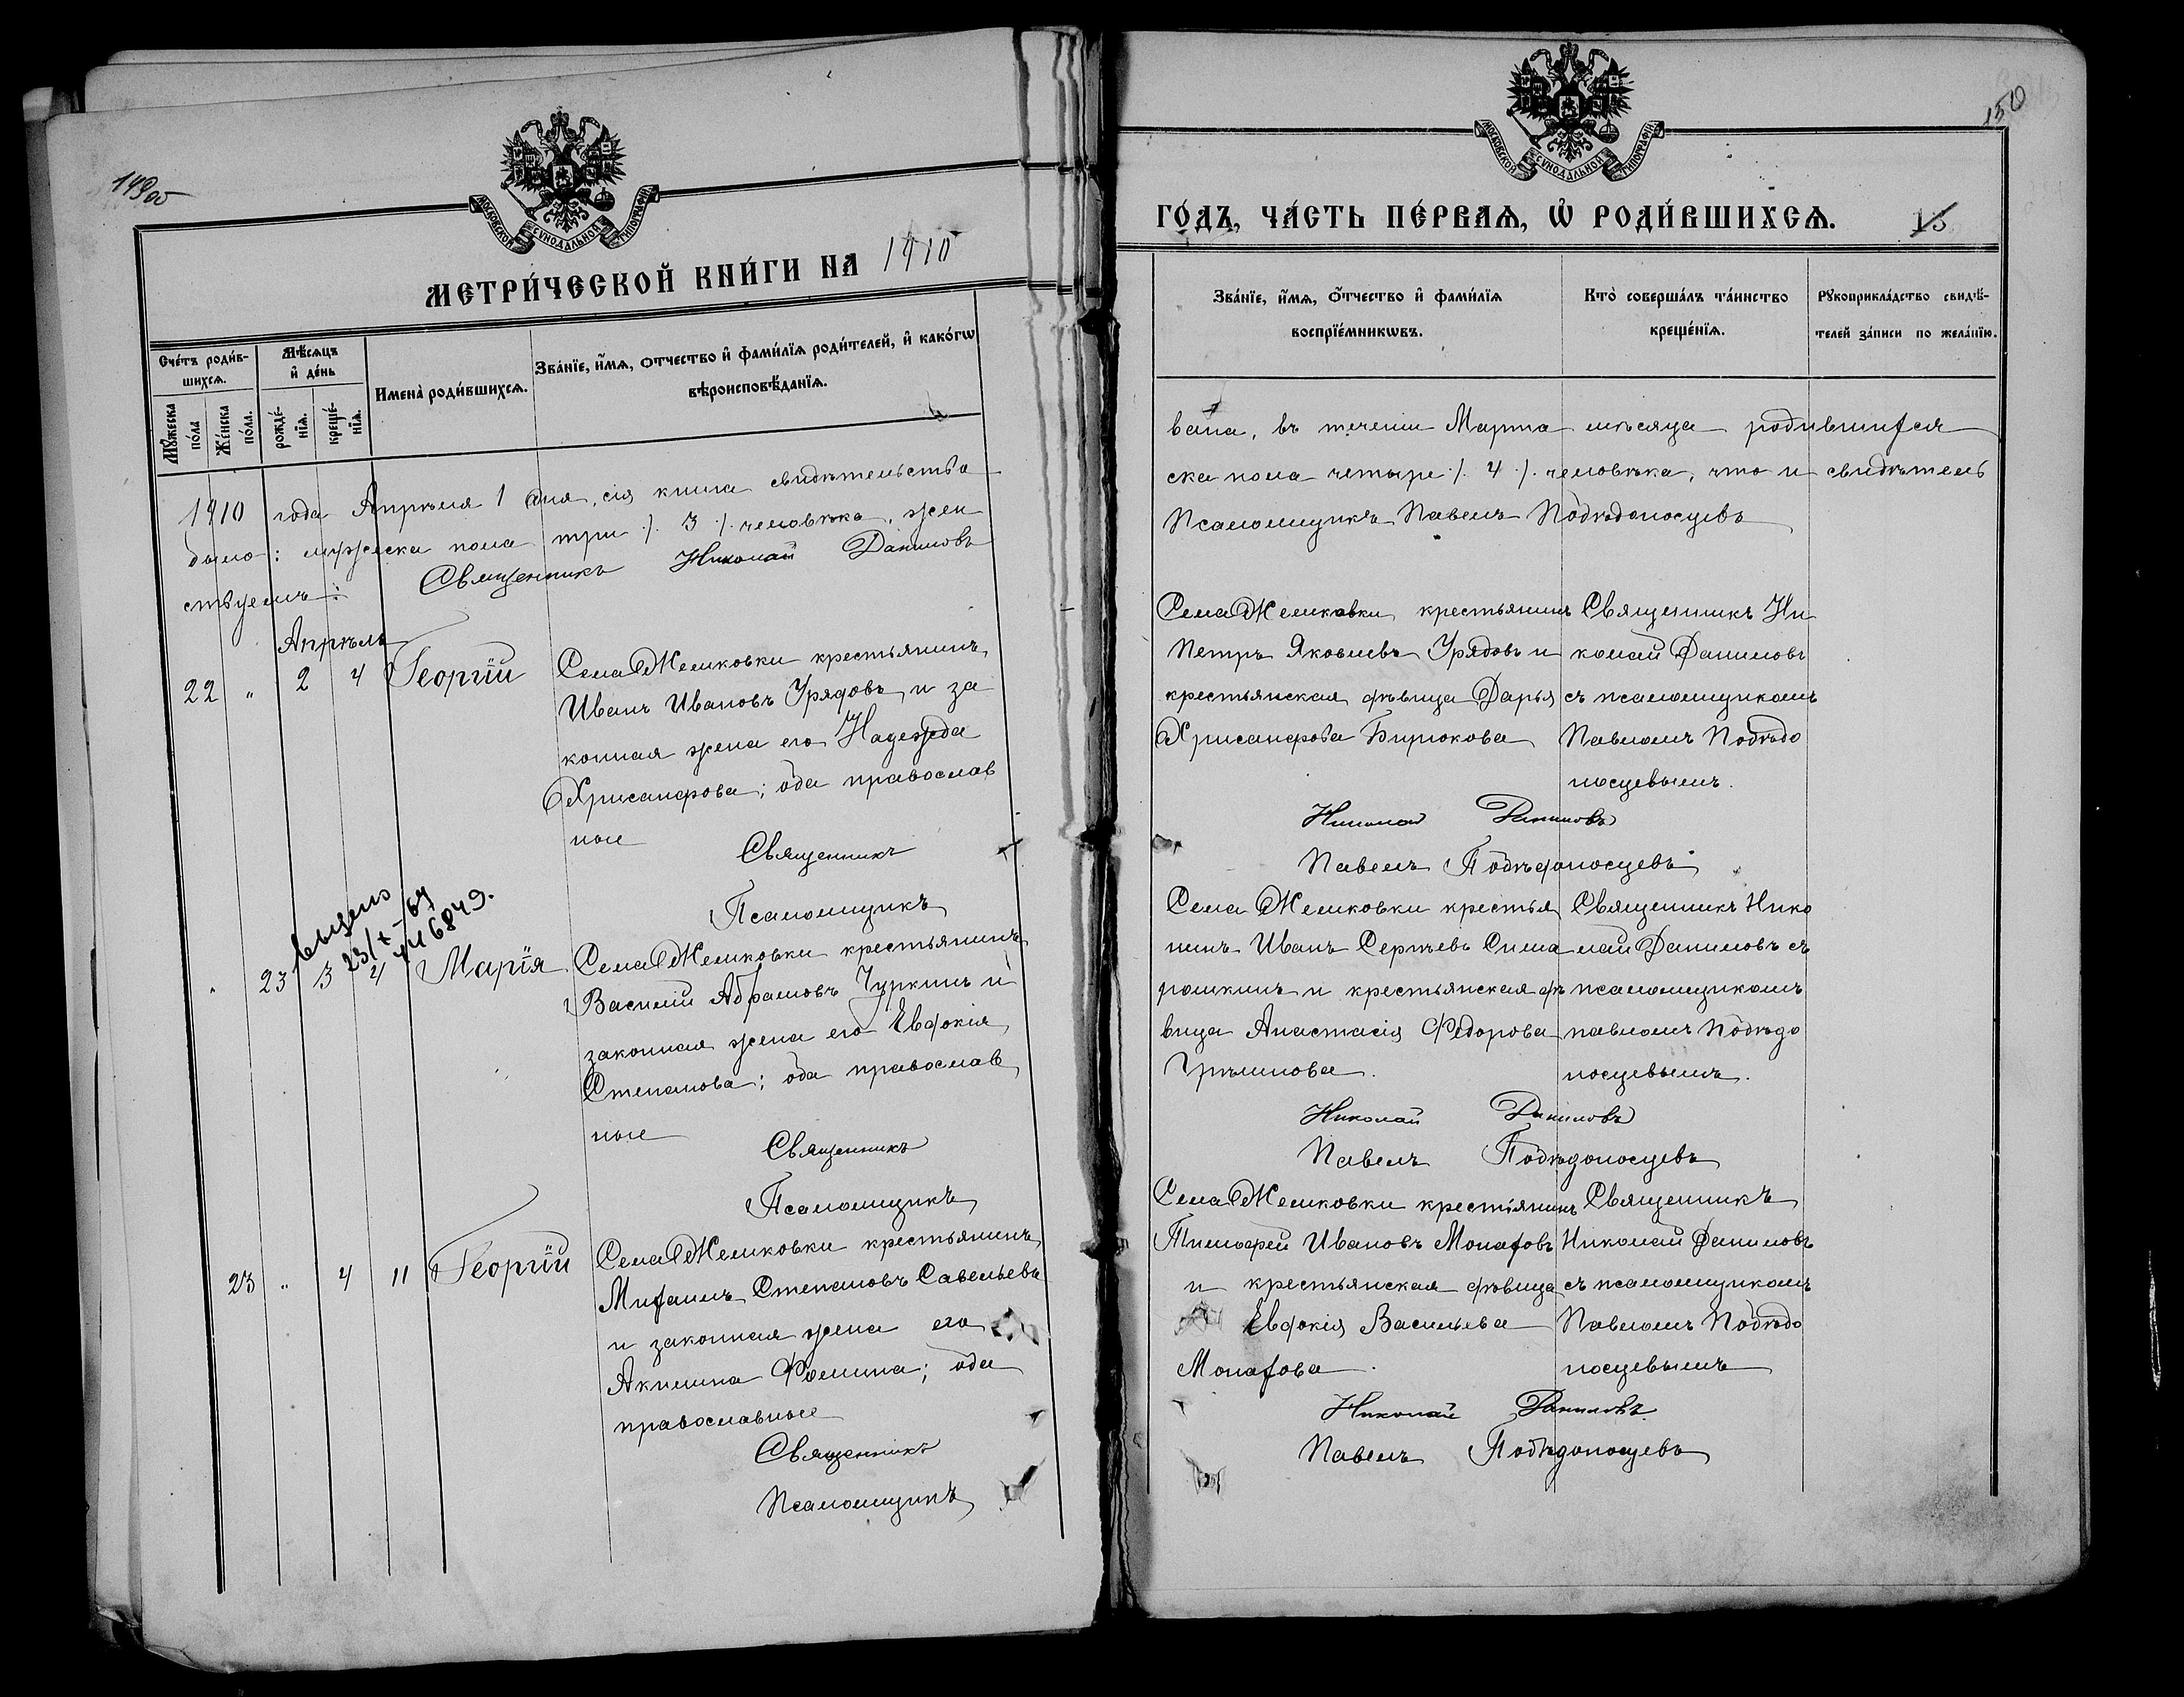 149об
МОСКОВСКОЙ СѴНОДАЛЬНОЙ ТИПОГРАФІИ
МЕТРИ́ЧЕСКОЙ КНИ́ГИ НА 1910
Сче́тъ роди́в-
шихсѧ.
Мꙋ́жеска
по́ла
Же́нска
по́ла.
Мѣ́сѧцъ
и҆ де́нь
рожде́-
нїѧ.
креще́-
нїѧ.
Имена̀ роди́вшихсѧ.
Зва́нїе, и҆́мѧ, ѻ҆́тчество и҆ фами́лїѧ роди́телей, и҆ како́гѡ
вѣроисповѣ́данїѧ.
1910 года Апрѣля 1 дня, сія книга свидѣтельство
было: мужеска пола три ·/. 3 ·/. человѣка, жен
ствуемъ:
Священникъ Николай Даниловъ
Апрѣль
22 " 2 4 Георгій
Села Желковки крестьянинъ
Иванъ Ивановъ Урядовъ и за
конная жена его Надежда
Хрисанфова; оба православ
ные
Священникъ
Псаломщикъ
23/X-67
446849.
" 23 3 4 Марія
Села Желковки крестьянинъ
Василій Абрамовъ Чуркинъ и
законная жена его Евдокія
Степанова; оба православ
ные
Священникъ
Псаломщикъ
23 " 4 11 Георгій
Села Желковки крестьянинъ
Михаилъ Степановъ Савельевъ
и законная жена его
Акилина Фомина; оба
православные
Священникъ
Псаломщикъ
150
МОСКОВСКОЙ СѴНОДАЛЬНОЙ ТИПОГРАФІИ
ГО́ДЪ, ЧА́СТЬ ПЕ́РВАѦ, Ѡ҆ РОДИ́ВШИХСѦ. 15
Зва́нїе, и҆́мѧ, ѻ҆́тчество и҆ фами́лїѧ
воспрїе́мникѡвъ.
Кто̀ соверша́лъ та́инство
креще́нїѧ.
Рꙋкоприкла́дство свидѣ́-
телей за́писи по жела́нїю.
вана, въ теченіи Марта мѣсяца родившихся
ска пола четыре ·/. 4 ·/. человѣка, что и свидѣтель
Псаломщикъ Павелъ Побѣдоносцевъ
Села Желковки крестьянинъ
Петръ Яковлевъ Урядовъ и
крестьянская дѣвица Дарья
Хрисанфова Бирюкова
Священникъ Ни
колай Даниловъ
съ псаломщикомъ
Павломъ Побѣдо
носцевымъ.
Николай Даниловъ
Павелъ Побѣдоносцевъ
Села Желковки крестья
нинъ Иванъ Сергѣевъ Сима
рошкинъ и крестьянская дѣ
вица Анастасія Федорова
Священникъ Нико
лай Даниловъ съ
псаломщикомъ
павломъ Побѣдо
носцевымъ.
Николай Даниловъ
Павелъ Побѣдоносцевъ
Села Желковки крестьянинъ
Тимофей Ивановъ Монаховъ
и крестьянская дѣвица
Евдокія Васильева
Монахова.
Священникъ
Николай Даниловъ
съ псаломщикомъ
Павломъ Побѣдо
носцевымъ
Николай Даниловъ
Павелъ Побѣдоносцевъ